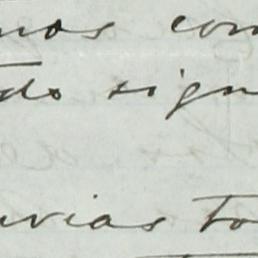 mos com
do sign
uvias to